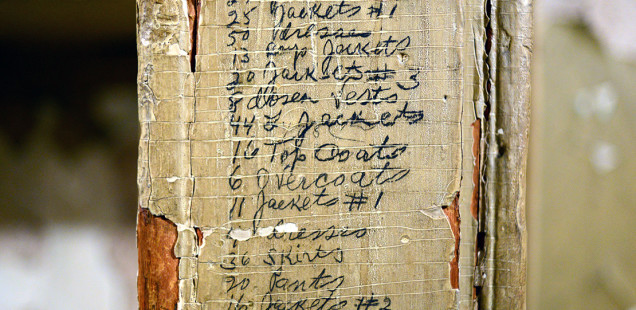 25 Jackets #1
50 dresses
13 Jackets
20 Jackets # 3
8 dozen Vests
44 Jackets
16 Top Coats
6 Overcoats
11 Jackets #1
dresses
Skirts
20 Pants
16 Jackets #2